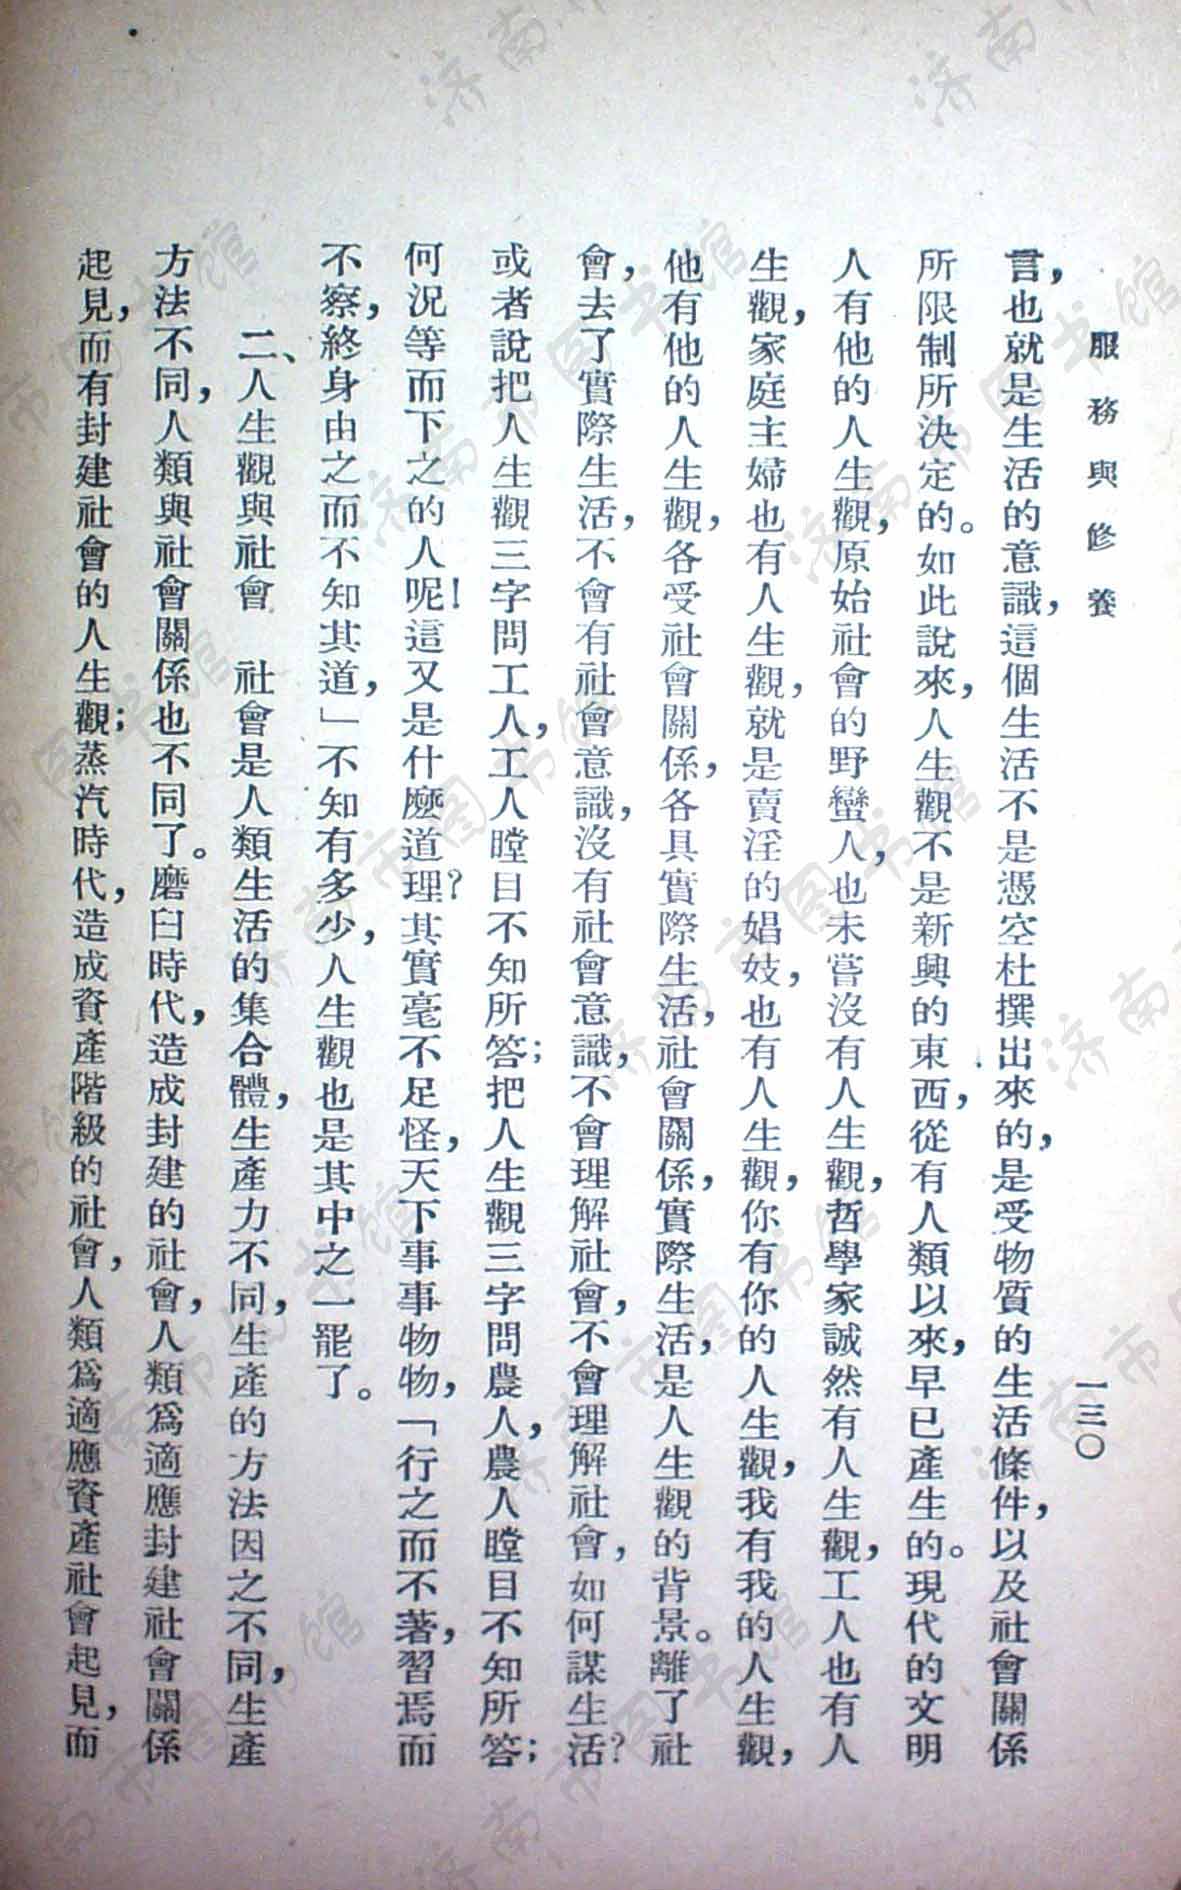 服務與修養
一三〇
言，也就是生活的意識，這個生活不是憑空杜撰出來的，是受物質的生活條件，以及社會關係
所限制所決定的。如此說來，人生觀不是新興的東西，從有人類以來，早已產生的。現代的文明
人有他的人生觀，原始社會的野蠻人，也未嘗沒有人生觀，哲學家誠然有人生觀，工人也有人
生觀，家庭主婦也有人生觀，就是賣淫的娼妓，也有人生觀，你有你的人生觀，我有我的人生觀，
他有他的人生觀，各受社會關係，各具實際生活，社會關係，實際生活，是人生觀的背景。離了社
會，去了實際生活，不會有社會意識，沒有社會意識，不會理解社會，不會理解社會，如何謀生活？
或者說把人生觀三字問工人，工人瞠目不知所答；把人生觀三字問農人，農人瞠目不知所答；
何況等而下之的人呢！這又是什麼道理？其實毫不足怪，天下事事物物，「行之而不著，習焉而
不察，終身由之而不知其道，」不知有多少，人生觀也是其中之一罷了。
二、人生觀與社會　社會是人類生活的集合體，生產力不同，生產的方法因之不同，生產
方法不同，人類與社會關係也不同了。磨臼時代，造成封建的社會，人類爲適應封建社會關係
起見，而有封建社會的人生觀；蒸汽時代，造成資產階級的社會，人類爲適應資產社會起見，而
济南市图书馆